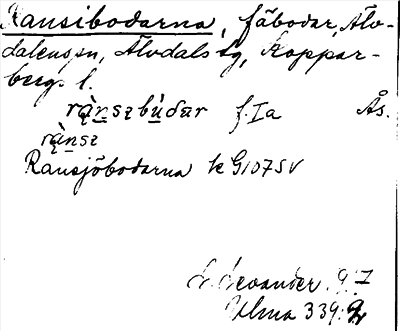 Ransibodarna, fäbodar, Älv-
dalens sn, Älvdals tg, Koppar-
bergs l.
rą̀nszbùdar f. Ia Ås.
rą̀nsz
Ransjöbodarna k G107SV
L. Levander. 9.7
Ulma 339: